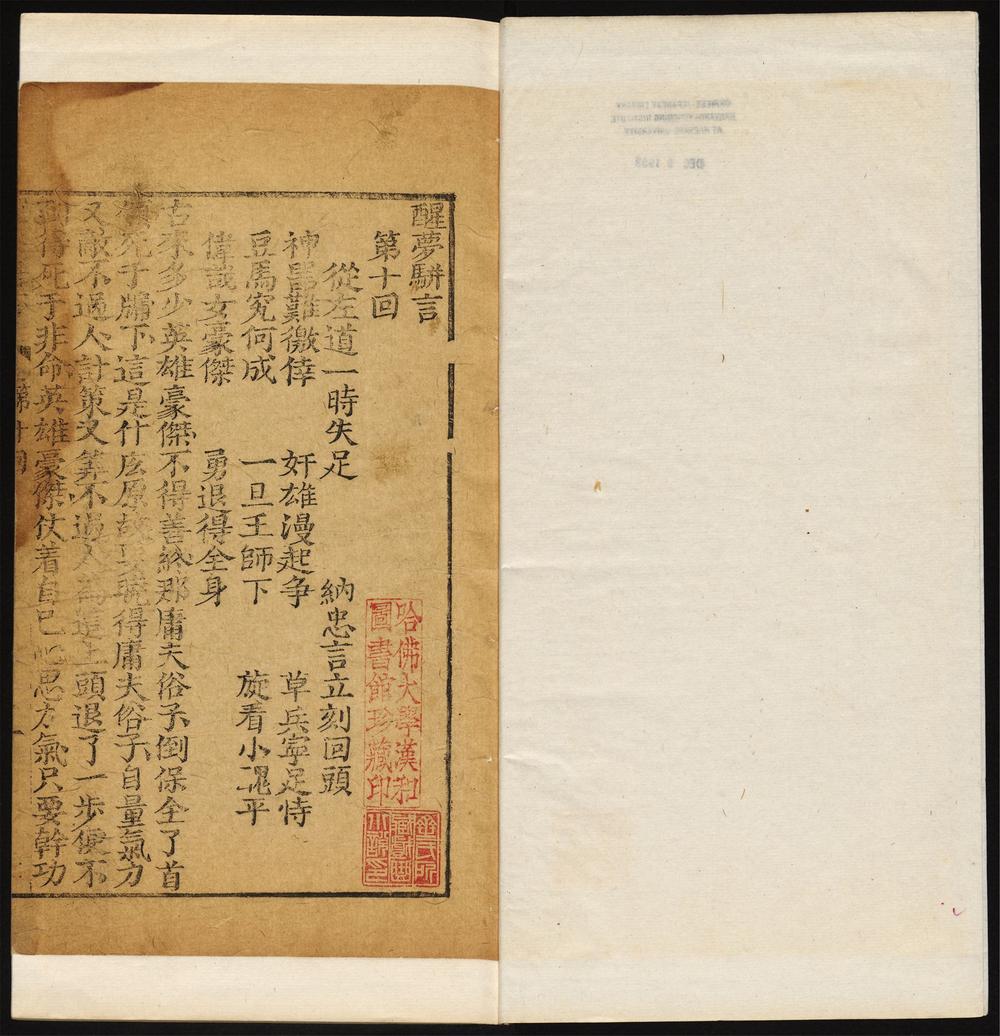 醒夢駢言
第十回
從左道一時失足　納忠言立刻回頭
神噐難徼倖　奸雄漫起争　草兵寧足恃
豆馬究何成　一旦王師下　旋看小醜平
偉哉女豪傑　勇退得全身
古來多少英雄豪傑不得善終那庸夫俗子倒保全了首
領死于牖下這是什庅原故要曉得庸夫俗子自量氣力
又敵不過人計策又筭不過人這上頭退了一步便不
到得死于非命英雄豪傑仗着自己心思力氣只要幹功
第十回
哈佛大學漢和
圖書館珍藏印
CHINESE-JAPANESE LIBRARY
HARVARD-YENCHING INSTITUTE
AT HARVARD UNIVERSITY